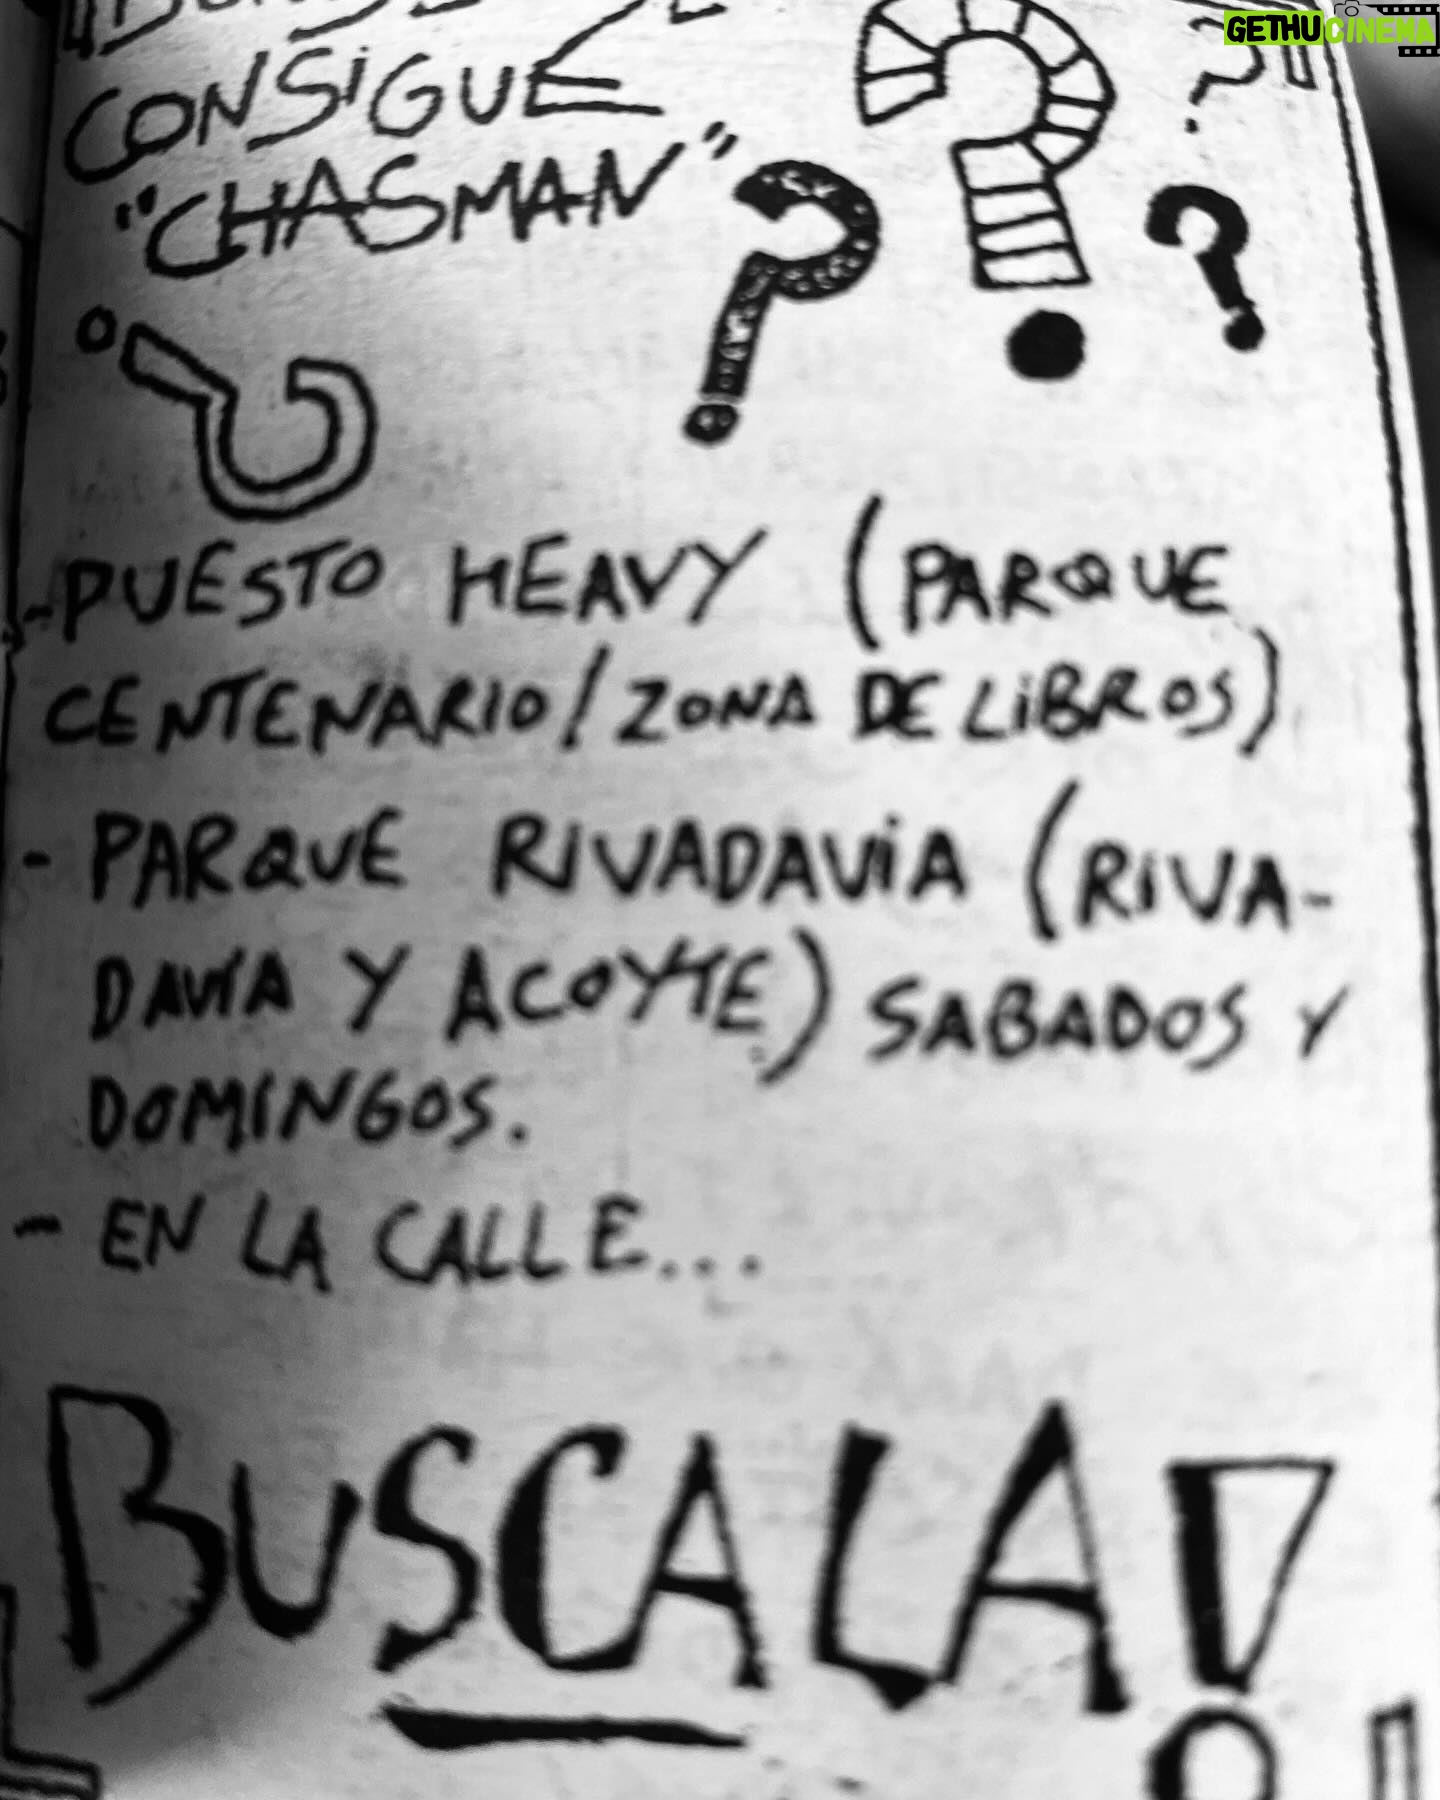 GETHUCINEMA
CONSiGUE
"CHASMAN"
-PUESTO HEAVY (PARQUE
CENTENARIO/ ZONA DE LiBROS)
- PARQUE RIVADAViA (RIVA-
DAVIA Y ACOYTE) SABADOS Y
DOMINGOS.
- EN LA CALLE...
BUSCALA!